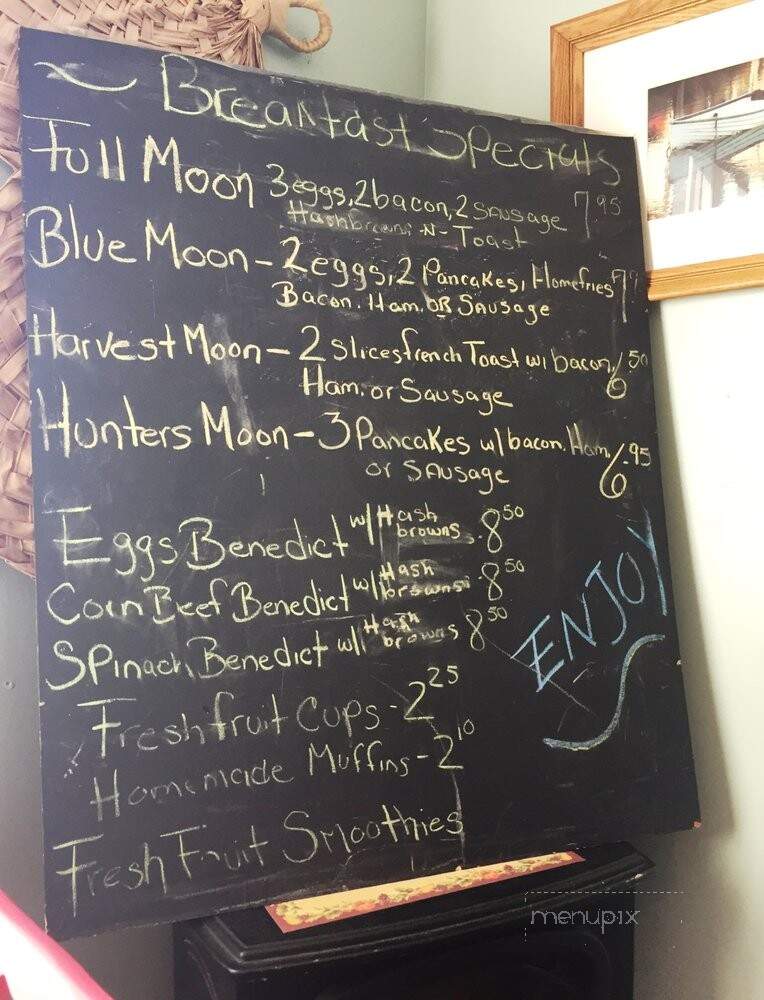 ~ Breakfast Specials
Full Moon 3eggs, 2bacon, 2 SAUSAGE 7.95
Hashbrowns -N- Toast
Blue Moon - 2eggs, 2 Pancakes, Homefries
Bacon. Ham. OR SAUSAge
Harvest Moon - 2 slices french Toast w/ bacon, 6 50
Ham. or Sausage
Hunters Moon - 3 Pancakes w/ bacon. Ham, 6.95
or SAUSAge
Eggs Benedict w/ Hash browns. 8 50
Corn Beef Benedict w/ Hash browns. 8 50
Spinach Benedict w/ Hash browns 8 50
Fresh fruit Cups - 2 25
Homemade Muffins - 2 10
Fresh Fruit Smoothies
ENJOY
menupix